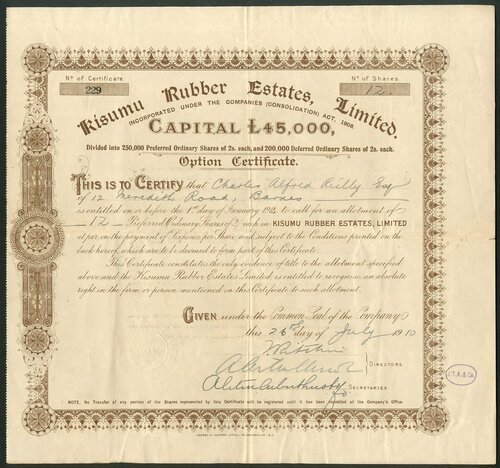 No of Certificate
229
No of Shares
12
Kisumu Rubber Estates, Limited.
INCORPORATED UNDER THE COMPANIES (CONSOLIDATION) ACT, 1908.
CAPITAL £45,000,
Divided into 250,000 Preferred Ordinary Shares of 2s. each, and 200,000 Deferred Ordinary Shares of 2s. each.
Option Certificate.
THIS IS TO CERTIFY that Charles Alfred Reilly Esq
of 12 Meredith Road, Barnes
is entitled on or before the 1st day of January 1912, to call for an allotment of
12 Preferred Ordinary Shares of 2/- each in KISUMU RUBBER ESTATES, LIMITED
at par on the payment of Sixpence per Share and subject to the Conditions printed on the
back hereof which are to be deemed to form part of this Certificate.
This Certificate constitutes the only evidence of title to the allotment specified
above and the Kisumu Rubber Estates Limited is entitled to recognise an absolute
right in the form or person mentioned in this Certificate to such allotment.
GIVEN under the Common Seal of the Company
this 26th day of July 1910
DIRECTORS.
SECRETARIES.
NOTE. No Transfer of any portion of the Shares represented by this Certificate will be registered until it has been deposited at the Company's Office.
J.T.A. & Co.